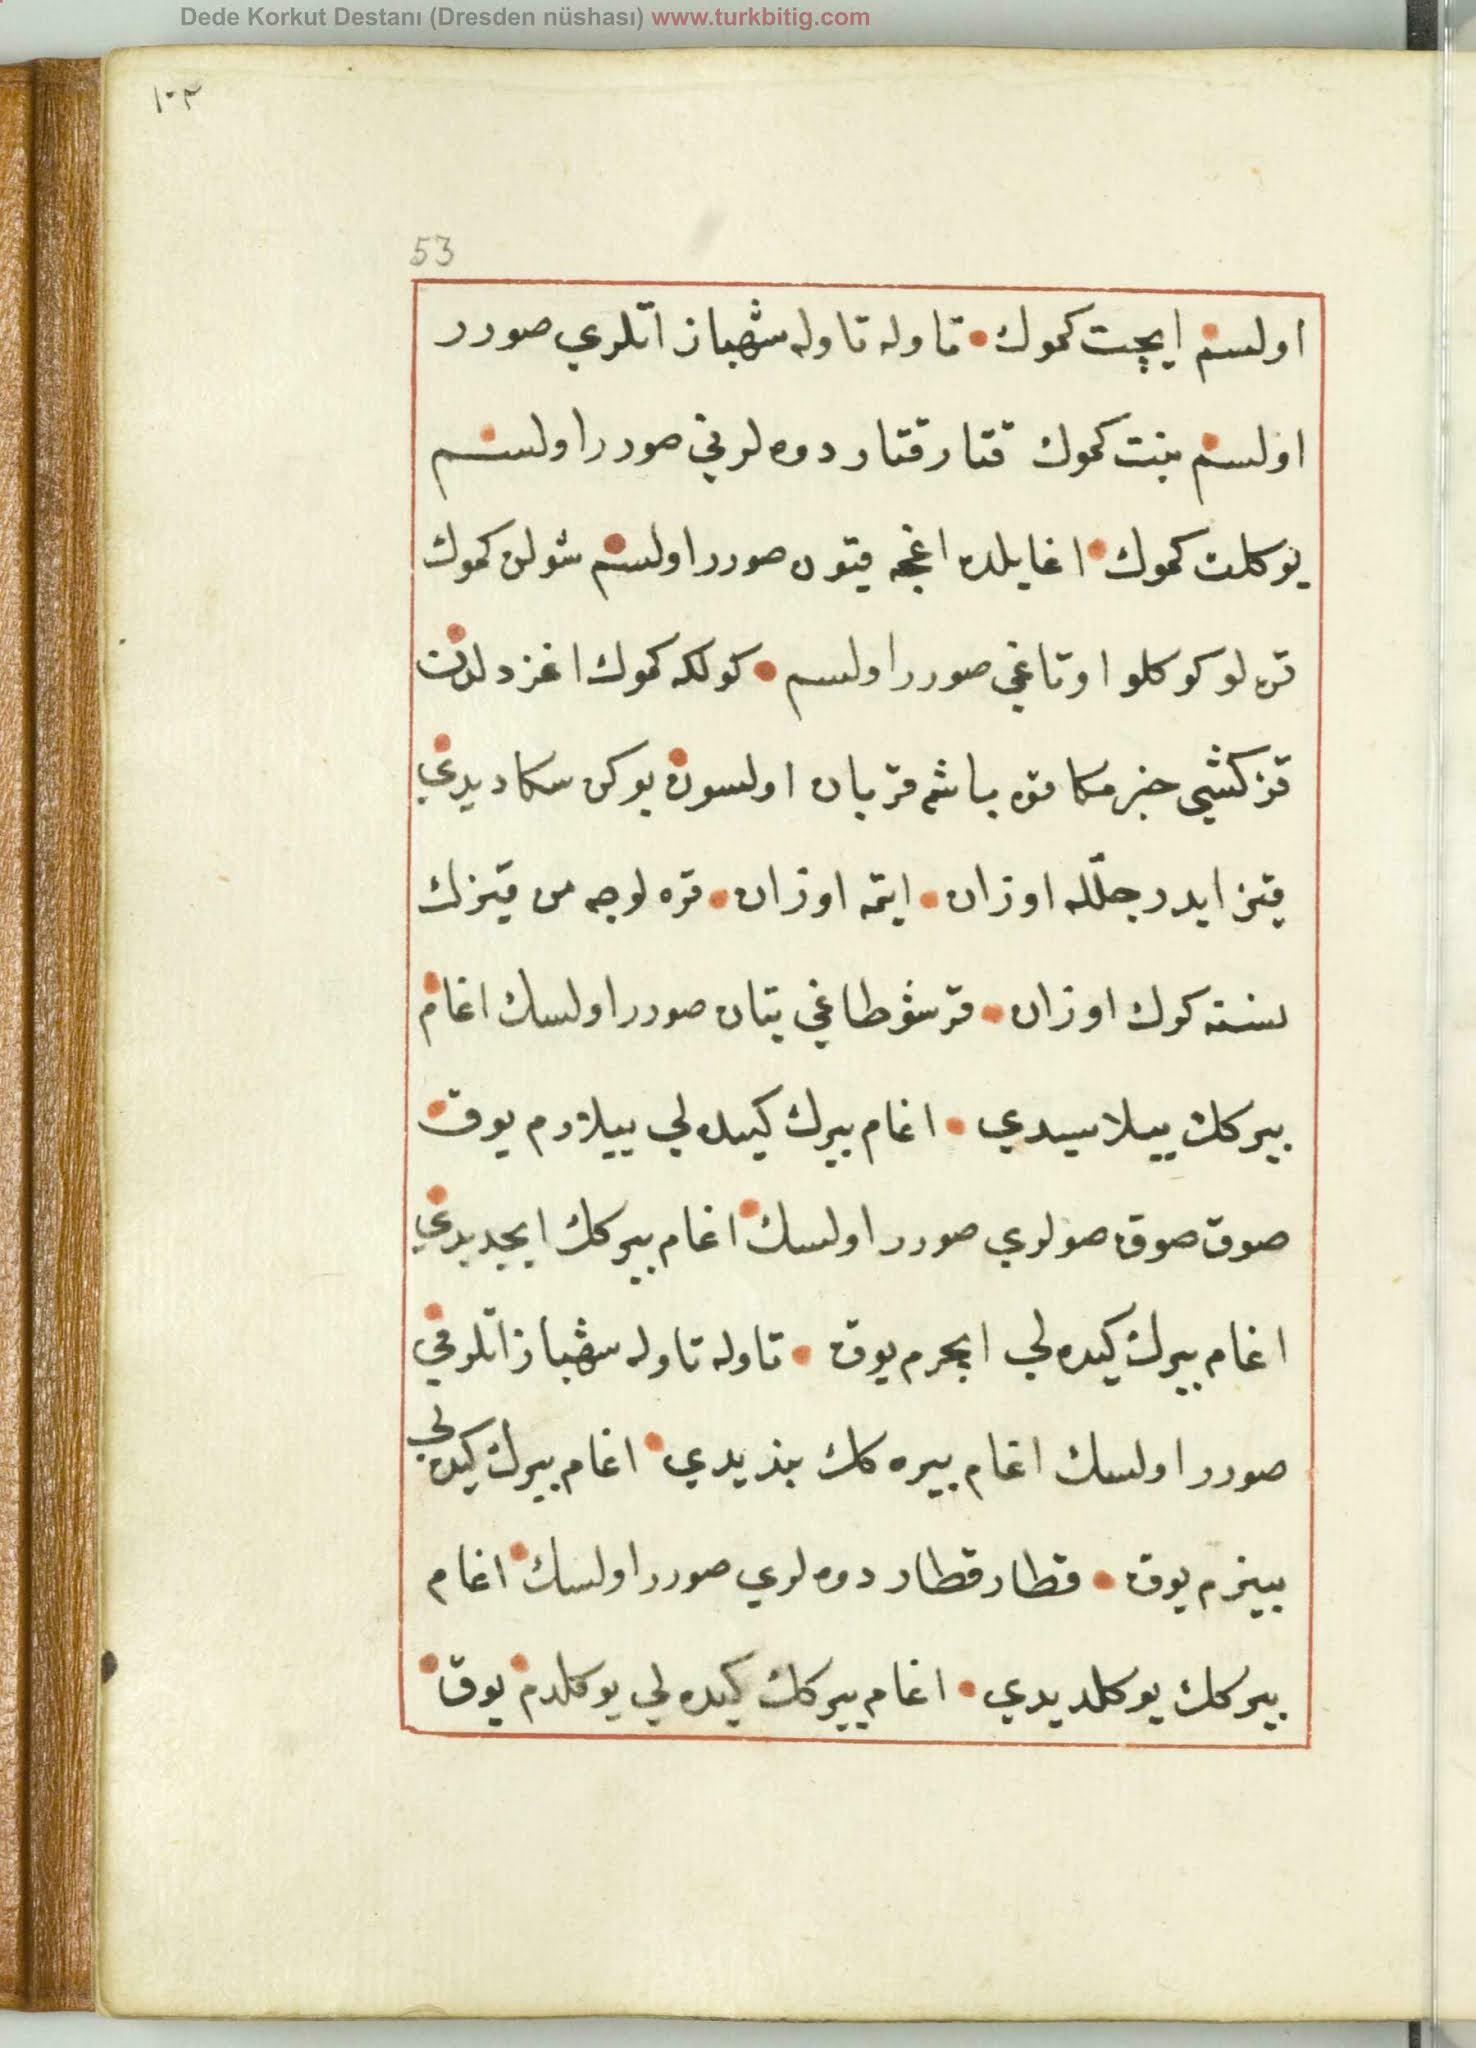 Dede Korkut Destanı (Dresden nüshası) www.turkbitig.com
١٠٢
53
اولسم ايچت كموك تاوله تاوله شهباز اتلري صورر
اولسم بنت كموك قتار قتار دوه لرني صورر اولسم
يوكلت كموك اغايلده اغجه قيون صورر اولسم شولن كموك
قره لو كوكلو اوتاغي صورر اولسم كولكه كموك اغز دلدن
قز كشي خبر مكا قره باشم قربان اولسون بوكن سكا ديدي
قيز ايدر چللمه اوزان ايتمه اوزان قره لوجه من قيزك
نسنه كوك اوزان قرشو طاغي يتان صورر اولسك اغام
بيركك ييلاسيدي اغام بيرك كيده لي ييلارم يوق
صوق صوق صولري صورر اولسك اغام بيركك ايچديدي
اغام بيرك كيده لي ايچرم يوق تاوله تاوله شهباز اتلرني
صورر اولسك اغام بيره كك بنديدي اغام بيرك كيده لي
بينرم يوق قطار قطار دوه لري صورر اولسك اغام
بيركك يوكلديدي اغام بيركك كيده لي يوكلدم يوق